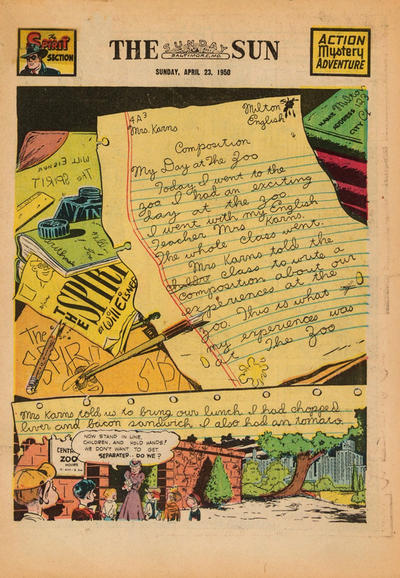 The
Spirit
SECTION
THE SUNDAY SUN
BALTIMORE, MD.
ACTION
Mystery
ADVENTURE
SUNDAY, APRIL 23, 1950
4A3
Mrs. Karns
Milton
English
Composition
My Day at The Zoo
Today I went to the
zoo I had an exciting
day at the zoo
I went with my English
Teacher Mrs Karns.
The whole class went.
Mrs Karns told the
class to write a
composition about our
experiences at the
zoo. This is what
my experiences was
The Zoo
NAME Milton
ADDRESS
CITY
WILL EISNER
THE SPIRIT
THE
SPIRIT
by
Will Eisner
The
SPIRIT
Mrs Karns told us to bring our lunch I had chopped
liver and bacon sandwich. I also had an tomato.
NOW STAND IN LINE,
CHILDREN, AND HOLD HANDS!
WE DON'T WANT TO GET
SEPARATED.. DO WE?
CENTRAL
ZOO
HOURS